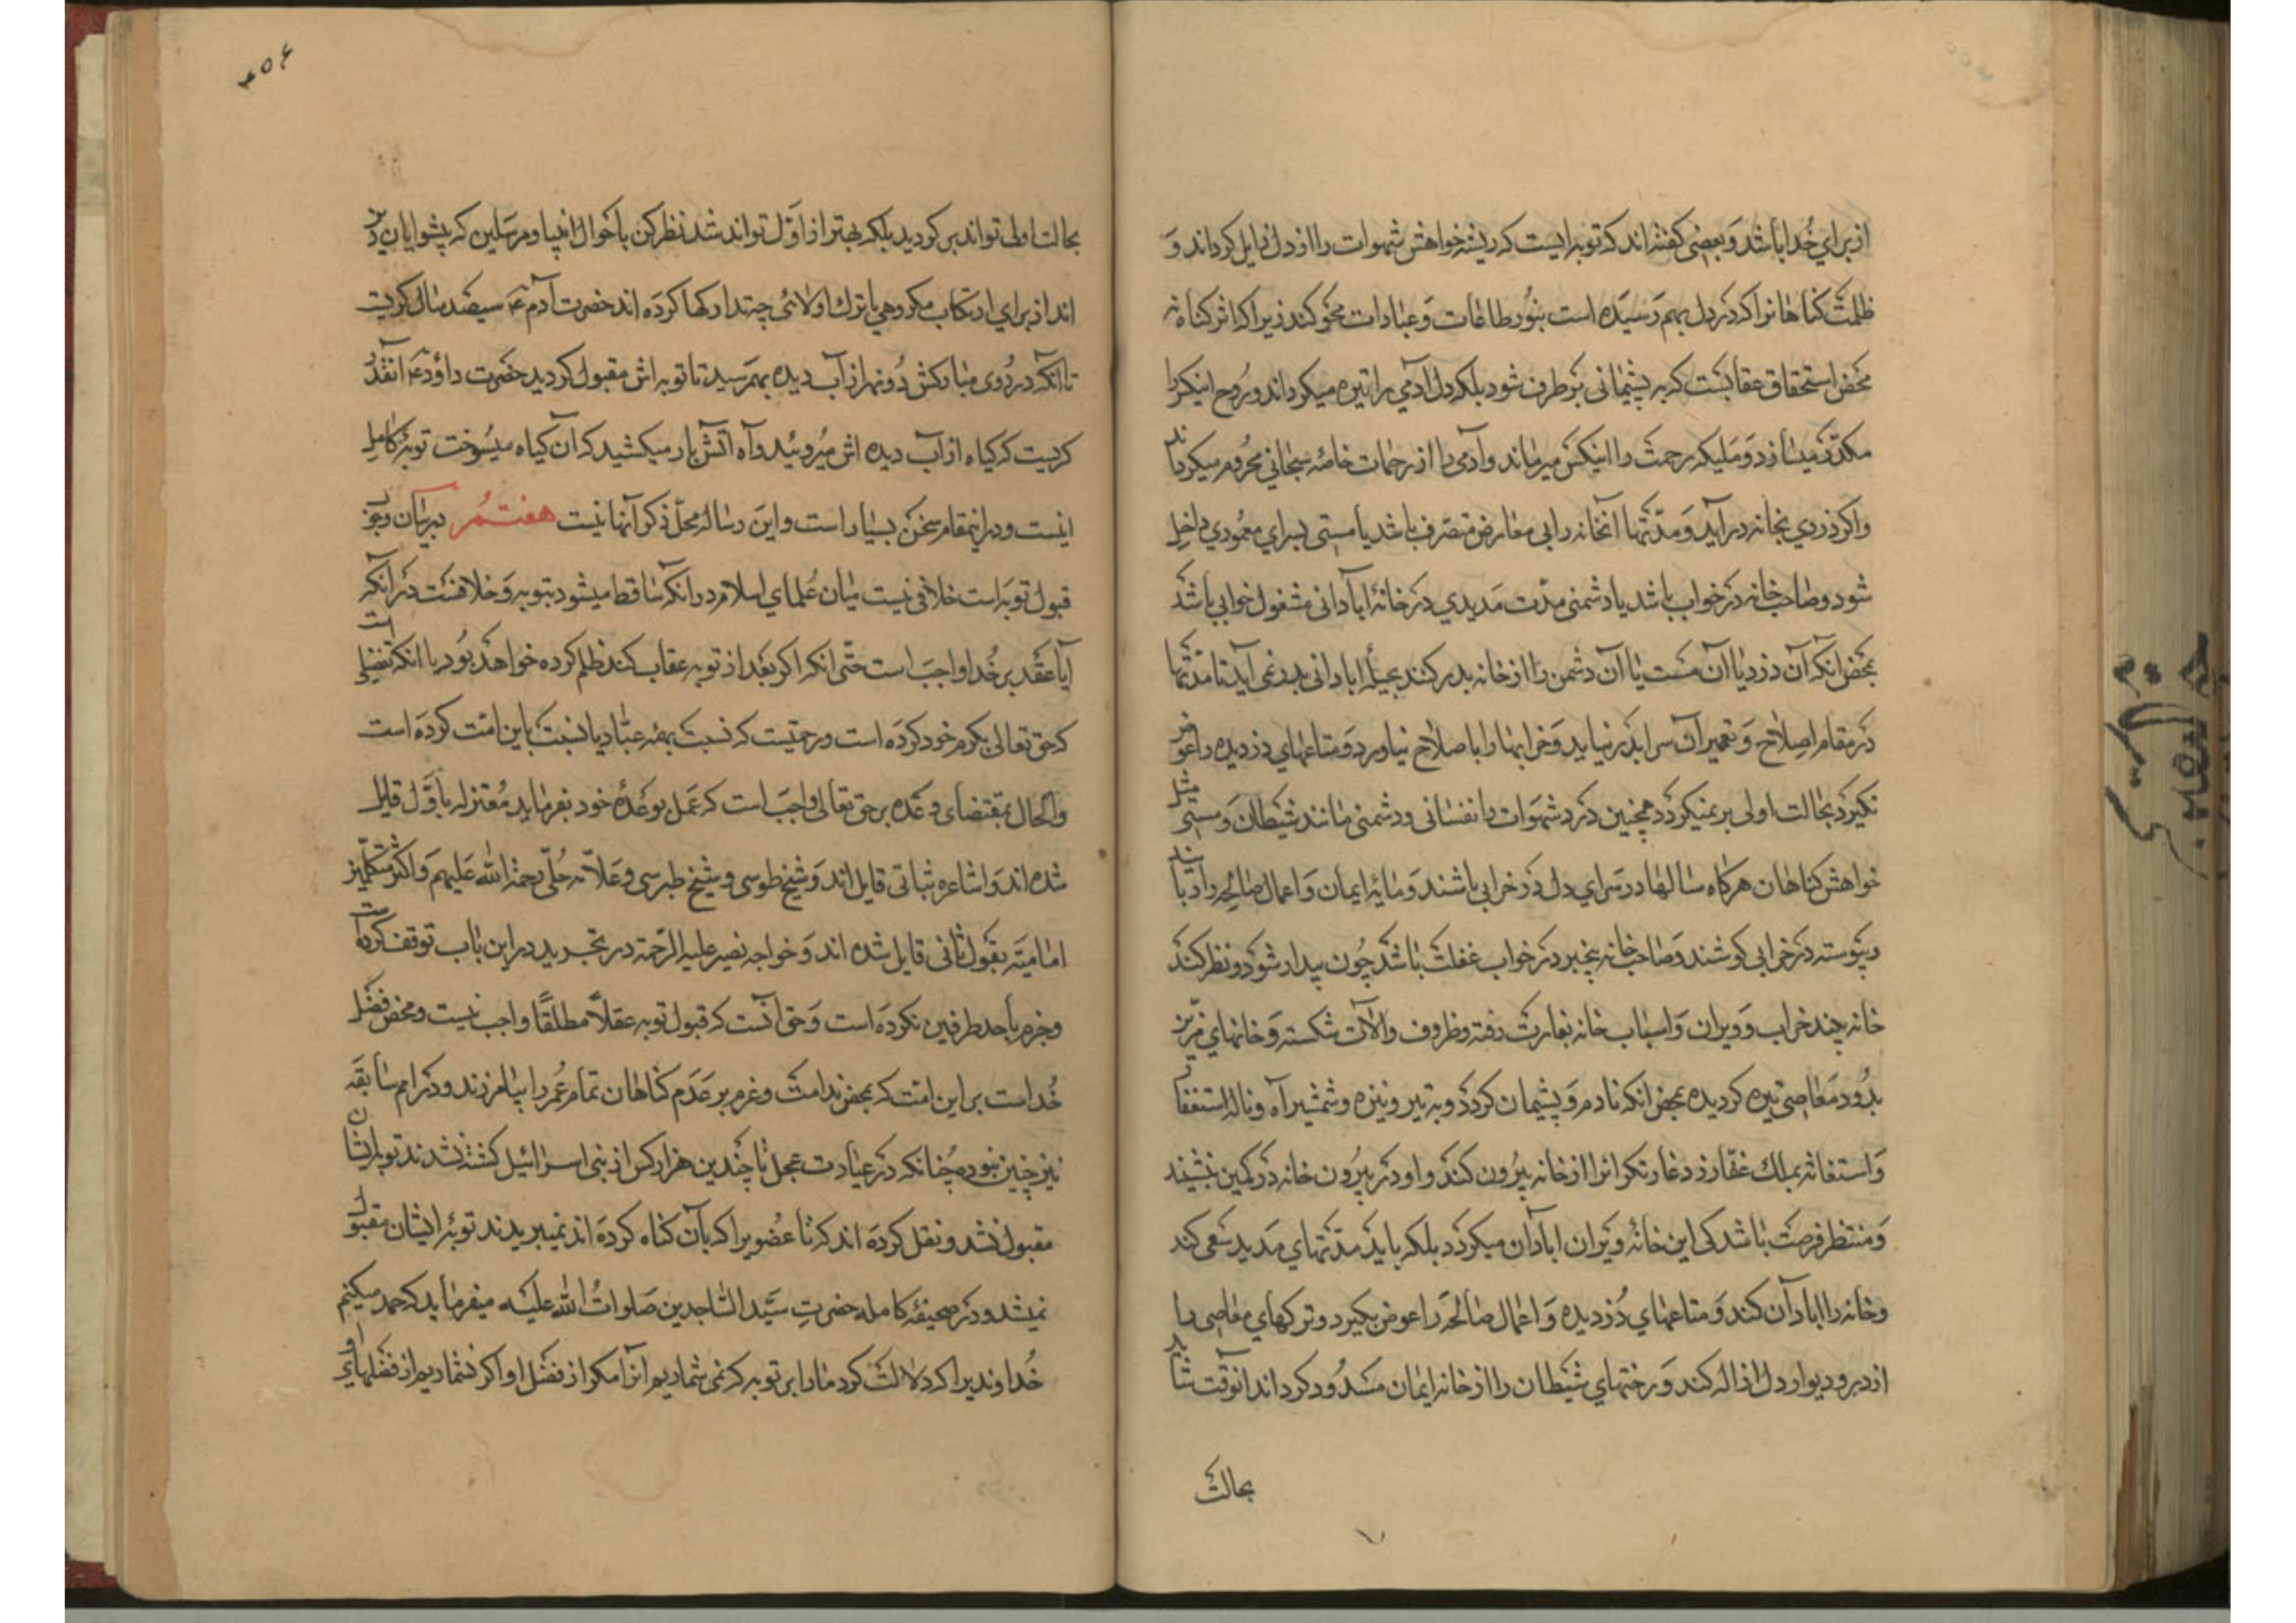 از برای خدا باشد و بعضی گفته‌اند که توبه اینست که ریشه خواهش شهوات را از دل زایل گرداند و
ظلمت گناهانرا که در دل بهم رسیده است بنور طاعات و عبادات محو کند زیرا که اثر گناه نه
محض استحقاق عقابست که به پشیمانی برطرف شود بلکه دل آدمی را تیره میگرداند و روح
مکدر میسازد و ملیکه رحمت را میرماند و آدمی را از رحمات خاصه سبحانی محروم میگرداند
و اگر دزدی بخانه درآید و مدتها آنخانه را بی معارض متصرف باشد یا مستی بسرای معموری داخل
شود و صاحب خانه در خواب باشد یا دشمنی مدت مدیدی در خانهٔ آبادانی مشغول خرابی باشد
بمحض آنکه آن دزد یا آن مست یا آن دشمن را از خانه بدر کنند آبادانی بدر نمی آید تا مدتها
در مقام اصلاح و تعمیر آن سرا بدر نیاید و خرابیها را باصلاح نیاورد و متاعهای دزدیده را عوض
نگیرد بحالت اولی برنمیگردد همچنین دزد شهوات نفسانی و دشمنی مانند شیطان و مستی مثل
خواهش گناهان هرگاه سالها در سرای دل در خرابی باشند و مایهٔ ایمان و اعمال صالحه را
و پیوسته در خرابی کوشند و صاحب خانه بیخبر در خواب غفلت باشد چون بیدار شود و نظر کند
خانه چند خراب و ویران و اسباب خانه بغارت رفته و ظروف و آلات شکسته و خانهای
بدود معاصی تیره گردیده بمحض آنکه نادم و پشیمان گردد و به تیر و نیزه و شمشیر آه و ناله استغفار
و استغاثه بملک غفار دزد غارتگر انرا از خانه بیرون کند و او در بیرون خانه در کمین نشیند
و منتظر فرصت باشد کی این خانهٔ ویران ابادان میگردد بلکه باید مدتهای مدید سعی کند
و خانه را ابادان کند و متاعهای دزدیده و اعمال صالحه را عوض بگیرد و ترکهای معاصی را
از در و دیوار دل ازاله کند و رختهای شیطان را از خانه ایمان مسدود گرداند انوقت شاید
بحالت
۴۵۶
بحالت اولی تواند برگردید بلکه بهتر از اول تواند شد نظر کن باحوال انبیا و مرسلین که پیشوایان دین
اند از برای ارتکاب مکروهی یا ترک اولائی چه تدارکها کرده اند حضرت آدم ع سیصد سال گریست
تا انکه در روی مبارکش دو نهر از آب دیده بهم رسید تا توبه اش مقبول گردید حضرت داود ع آنقدر
گریست که گیاه از آب دیده اش میروئید و آه آتش بار میکشید که آن گیاه میسوخت توبهٔ کامل
اینست و در اینمقام سخن بسیار است و این رساله محل ذکر آنها نیست هفتم در بیان وجوب
قبول توبه است خلافی نیست میان علمای اسلام در انکه عقاب ساقط میشود بتوبه و خلافست در انکه
آیا عقلا بر خدا واجب است حتی انکه اگر بعد از توبه عقاب کند ظلم کرده خواهد بود یا انکه تفضلی است
که حق تعالی بکرم خود کرده است و رحمتیست که نسبت بهمه عباد یا نسبت باین امت کرده است
والحال بمقتضای وعده بر حق تعالی واجب است که عمل بوعدهٔ خود بفرماید معتزله باول قایل
شده اند و اشاعره بثانی قایل اند و شیخ طوسی و شیخ طبرسی و علامه حلی رحمة الله علیهم و اکثر متکلمین
امامیه بقول ثانی قایل شده اند و خواجه نصیر علیه الرحمة در تجرید در این باب توقف کرده است
و جزم باحد طرفین نکرده است و حق آنست که قبول توبه عقلا مطلقا واجب نیست و محض فضل
خداست بر این امت که بمحض ندامت و عزم بر عدم گناهان تمام عمر را بیامرزند و در امم سابقه
نیز چنین نبوده چنانکه در عبادت عجل تا چندین هزار کس از بنی اسرائیل کشته نشدند توبه ایشان
مقبول نشد و نقل کرده اند که تا عضویرا که بآن گناه کرده اند نمیبریدند توبهٔ ایشان مقبول
نمیشد و در صحیفهٔ کامله حضرت سید الساجدین صلوات الله علیه میفرماید که حمد میکنیم
خداوندیرا که دلالت کرد ما را بر توبه که نمی شماریم آنرا مگر از فضل او اگر نشماریم از فضلهای او